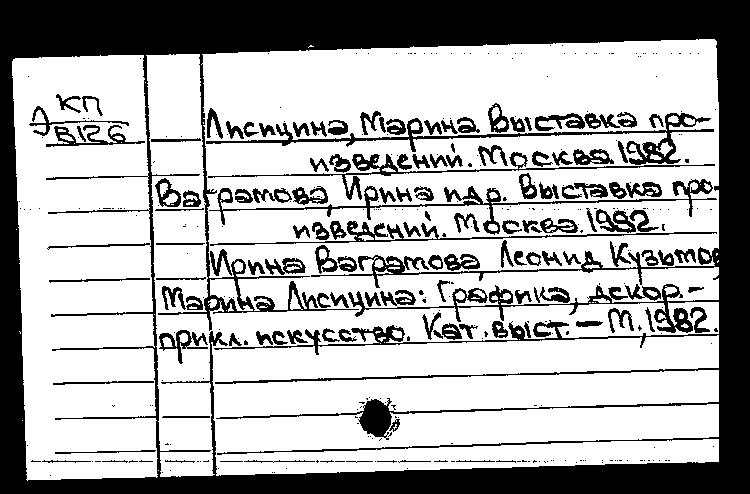 Э КП
В126
Лисицина, Марина. Выставка про-
изведений. Москва. 1982.
Ваграмова, Ирина и др. Выставка про-
изведений. Москва. 1982.
Ирина Ваграмова, Леонид Кузьмов
Марина Лисицина: Графика, декор.-
прикл. искусство. Кат. выст. — М., 1982.